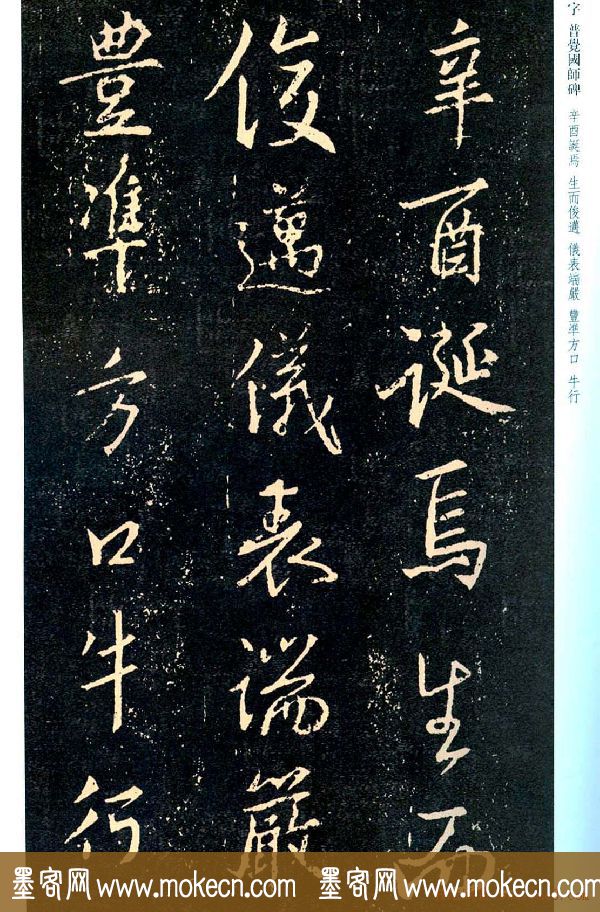 字 普覺國師碑 辛酉誕焉 生而俊邁 儀表端嚴 豐準方口 牛行
辛酉誕焉生而
俊邁儀表端嚴
豊準方口牛行
墨客网 www.mokecn.com 墨客网 www.mokecn.com